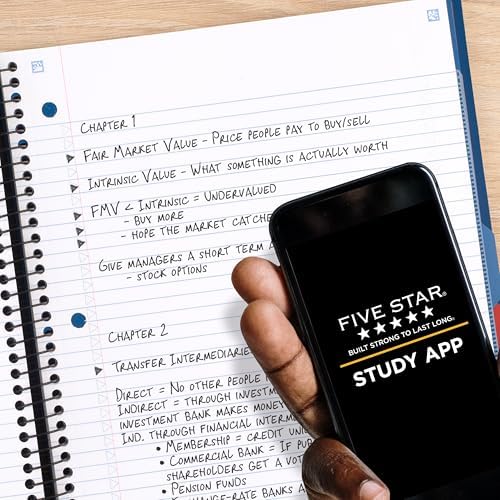 CHAPTER 1
FAIR MARKET VALUE - PRICE PEOPLE PAY TO BUY/SELL
INTRINSIC VALUE - WHAT SOMETHING IS ACTUALLY WORTH
FMV < INTRINSIC = UNDERVALUED
- BUY MORE
- HOPE THE MARKET CATCHE
GIVE MANAGERS A SHORT TERM
- STOCK OPTIONS
CHAPTER 2
TRANSFER INTERMEDIARIE
DIRECT = NO OTHER PEOPLE
INDIRECT = THROUGH INVESTM
INVESTMENT BANK MAKES MONEY
IND. THROUGH FINANCIAL INTERM
• MEMBERSHIP = CREDIT UNI
• COMMERCIAL BANK = IF PUB
SHAREHOLDERS GET A VOT
• PENSION FUNDS
FIVE STAR®
BUILT STRONG TO LAST LONG®
STUDY APP